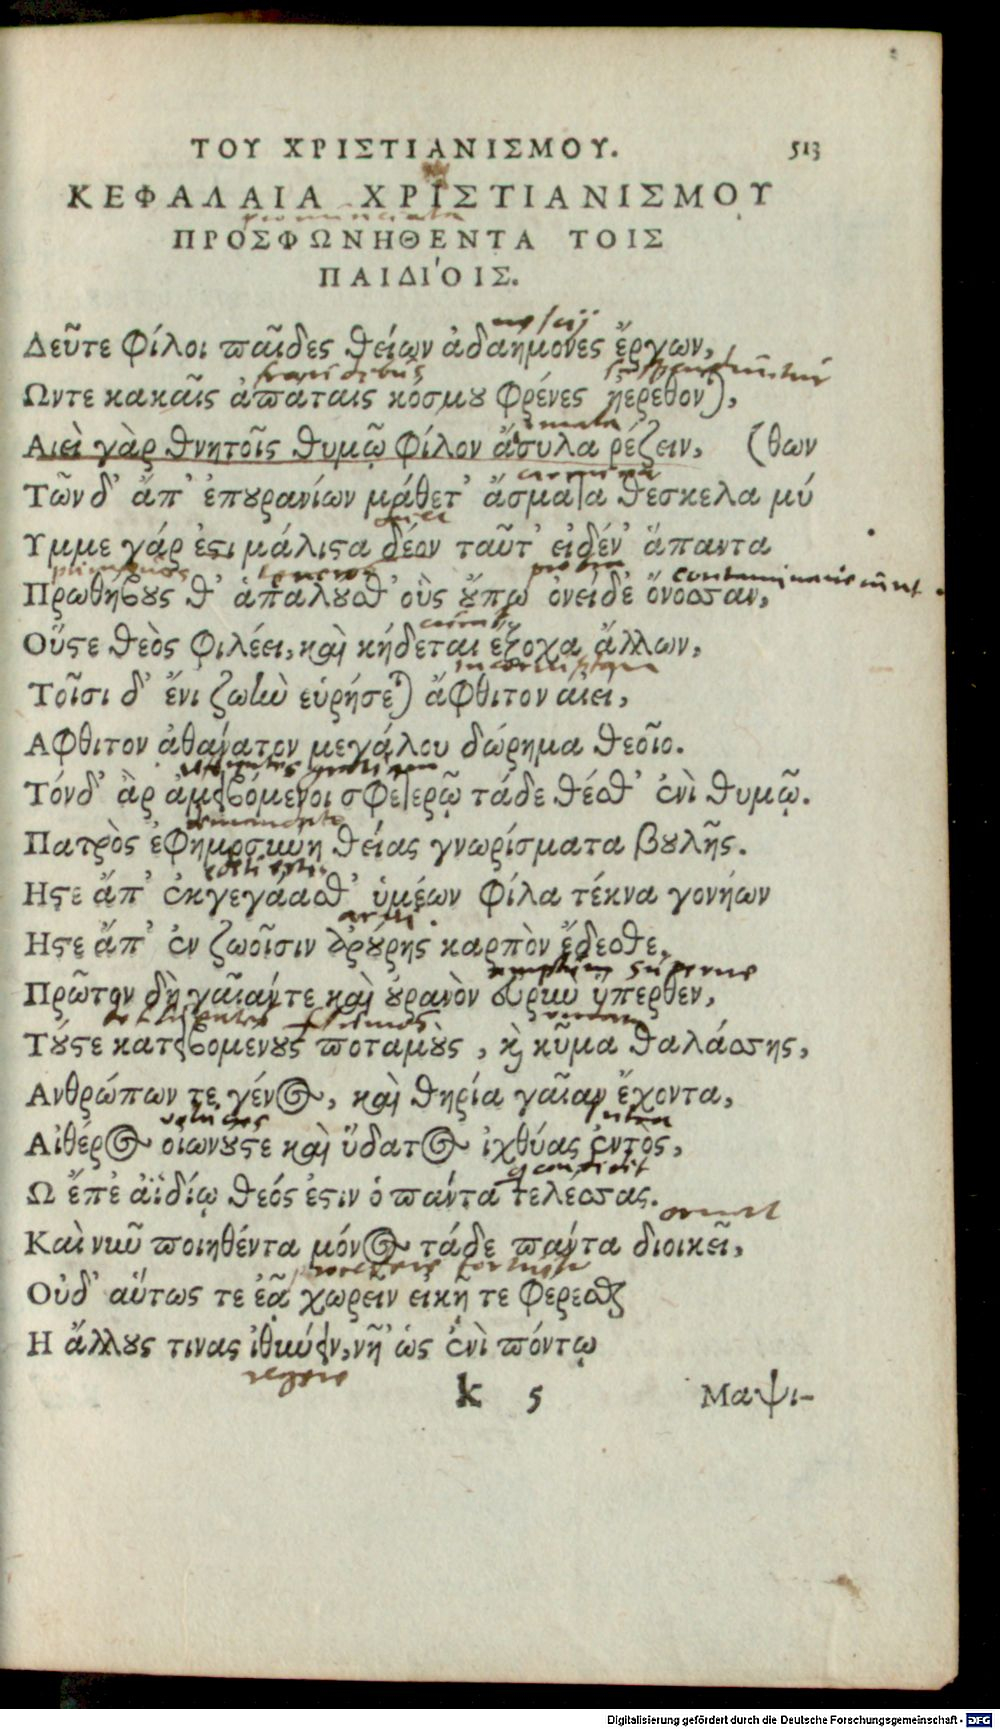 ΤΟΥ ΧΡΙΣΤΙΑΝΙΣΜΟΥ. 513
ΚΕΦΑΛΑΙΑ ΧΡΙΣΤΙΑΝΙΣΜΟΥ
pronunciata
ΠΡΟΣΦΩΝΗΘΕΝΤΑ ΤΟΙΣ
ΠΑΙΔΙΌΙΣ.
nescij
Δεῦτε φίλοι παῖδες θείων ἀδαήμονες ἔργων,
fraudibus
Ωντε κακαῖς ἀπάταις κόσμου φρένες ἠερέθον),
Αιεὶ γὰρ θνητοῖς θυμῷ φίλον ἄσυλα ῥέζειν, (θων
carmina
Τῶν δ' ἄπ' ἐπουρανίων μάθετ' ἄσματα θέσκελα μύ
Υμμε γάρ ἐστι μάλιστα δέον ταῦτ' εἰδέν' ἅπαντα
teneros probra contaminaverunt.
Πρωθήβους θ' ἁπαλούσθ' οὓς οὔπω ὀνείδε' ὄνοσσαν,
Οὕστε θεὸς φιλέει, καὶ κήδεται ἔξοχα ἄλλων,
Τοῖσι δ' ἔνι ζωὴν εὑρήσετ) ἄφθιτον αιει,
Αφθιτον ἀθανατον μεγάλου δώρημα θεοῖο.
Τόνδ' ἂρ ἀμειβόμενοι σφετερῷ τάδε θέσθ' ἐνὶ θυμῷ.
Πατρὸς ἐφημοσύνη θείας γνωρίσματα βουλῆς.
Ηστε ἄπ' ἐκγεγάασθ' ὑμέων φίλα τέκνα γονήων
Ηστε ἄπ' ἐν ζωοῖσιν ἀρούρης καρπὸν ἔδεσθε,
superne
Πρῶτον δὴ γαῖαν τε καὶ οὐρανὸν εὐρὺν ὕπερθεν,
Τούστε κατειβομενους ποταμοὺς, κὶ κῦμα θαλάσσης,
Ανθρώπων τε γένος, καὶ θηρία γαῖαν ἔχοντα,
volucres intra
Αἰθέρος οἰωνούστε καὶ ὕδατος ἰχθύας ἐντὸς,
Ω ἔπε ἀϊδίῳ θεός ἐστιν ὁ πάντα τελέσσας.
Καὶ νῦν ποιηθέντα μόνος τάδε πάντα διοικεῖ,
Οὐδ' αὕτως τε ἐᾷ χωρεῖν εἰκῇ τε φέρεσθαι
Η ἄλλους τινας ἰθύειν, νῆ' ὡς ἐνὶ πόντῳ
regere
k 5 Μαψι-
Digitalisierung gefördert durch die Deutsche Forschungsgemeinschaft - DFG